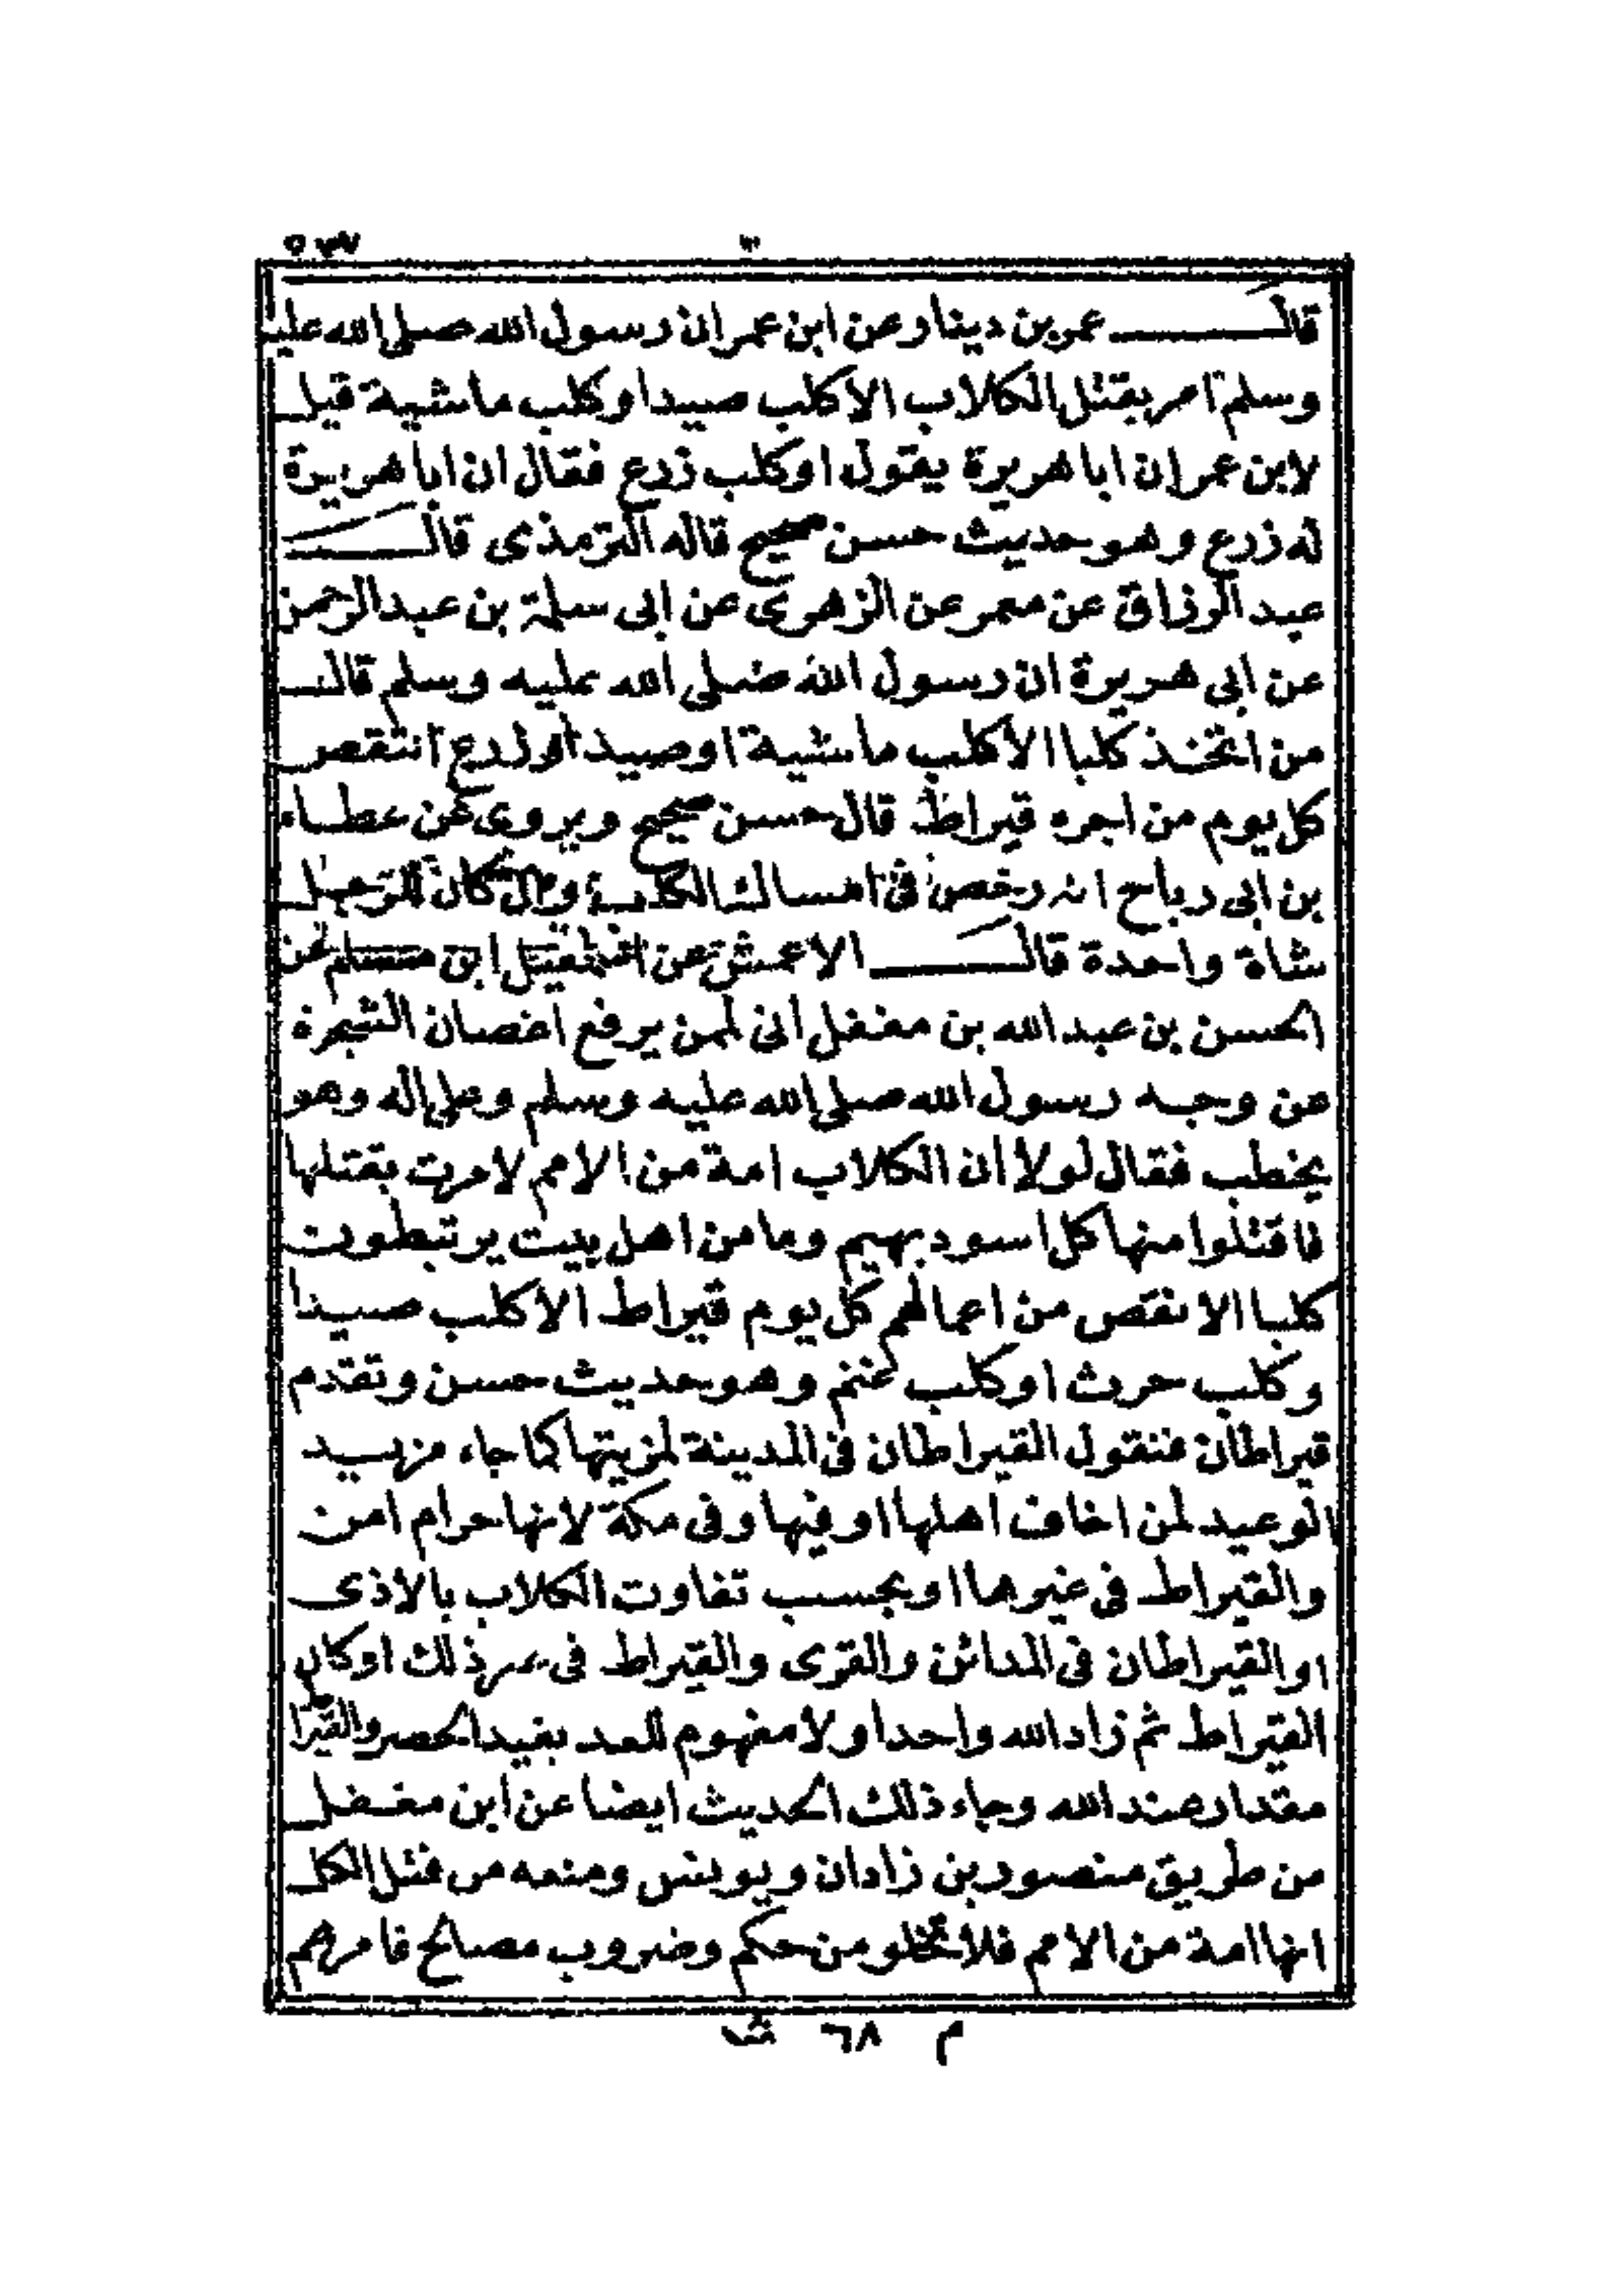 ٥٣٧
قال عمرو بن دينار عن ابن عمر ان رسول الله صلى الله عليه
وسلم امر بقتل الكلاب الا كلب صيد او كلب ماشية قيل
لابن عمر ان ابا هريرة يقول او كلب زرع فقال ان ابا هريرة
له زرع وهو حديث حسن صحيح قاله الترمذى قال
عبد الرزاق عن معمر عن الزهرى عن ابى سلمة بن عبد الرحمن
عن ابى هريرة ان رسول الله صلى الله عليه وسلم قال
من اتخذ كلبا الا كلب ماشية او صيد او زرع انتقص
كل يوم من اجره قيراط قال حسن صحيح ويروى عن عطاء
بن ابى رباح انه رخص فى امساك الكلب وان كان للرجل
شاة واحدة قال الاعمش عن ابن مسلم عن
الحسن بن عبد الله بن مغفل انى لمن يرفع اغصان الشجرة
عن وجه رسول الله صلى الله عليه وسلم وعلى اله وهو
يخطب فقال لولا ان الكلاب امة من الامم لامرت بقتلها
فاقتلوا منها كل اسود بهيم وما من اهل بيت يرتبطون
كلبا الا نقص من اعمالهم كل يوم قيراط الا كلب صيدا
وكلب حرث او كلب غنم وهو حديث حسن وتقدم
قيراطان فنقول القيراطان فى المدينة لمزيتها كما جاء مزيد
الوعيد لمن اخاف اهلها او فيها وفى مكة لانها حرام امن
والقيراط فى غيرها او بحسب تفاوت الكلاب بالاذى
او القيراطان فى المدائن والقرى والقيراط فى غير ذلك او كان
القيراط ثم زاد الله واحدا ولا مفهوم للعدد بفيد الحصر والقيرا
مقدار عند الله وجاء ذلك الحديث ايضا عن ابن مغفل
من طريق منصور بن زادان ويونس ومنعه من قتل الكل
انها امة من الامم فلا تخلو من حكم وضروب مصالح فامرهم
م ٦٨ ث